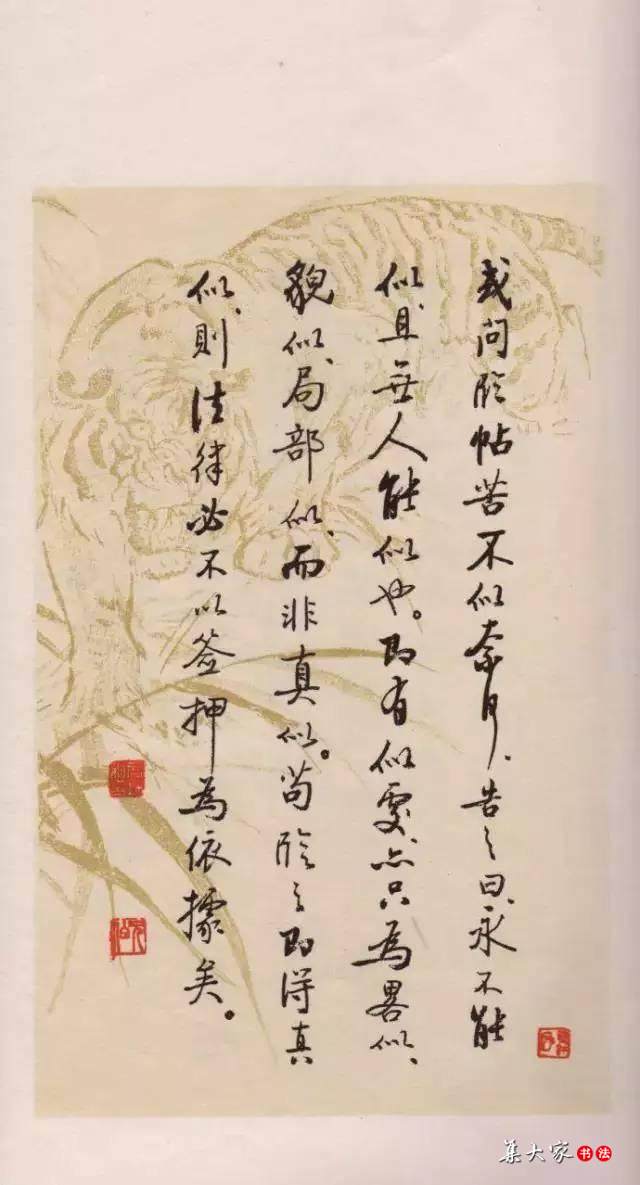 或问臨帖苦不似奈何、告之曰、永不能
似、且無人能似也。即有似處、亦只為畧似、
貌似、局部似、而非真似。苟臨之即得真
似、則法律必不以签押為依據矣。
集大家书法